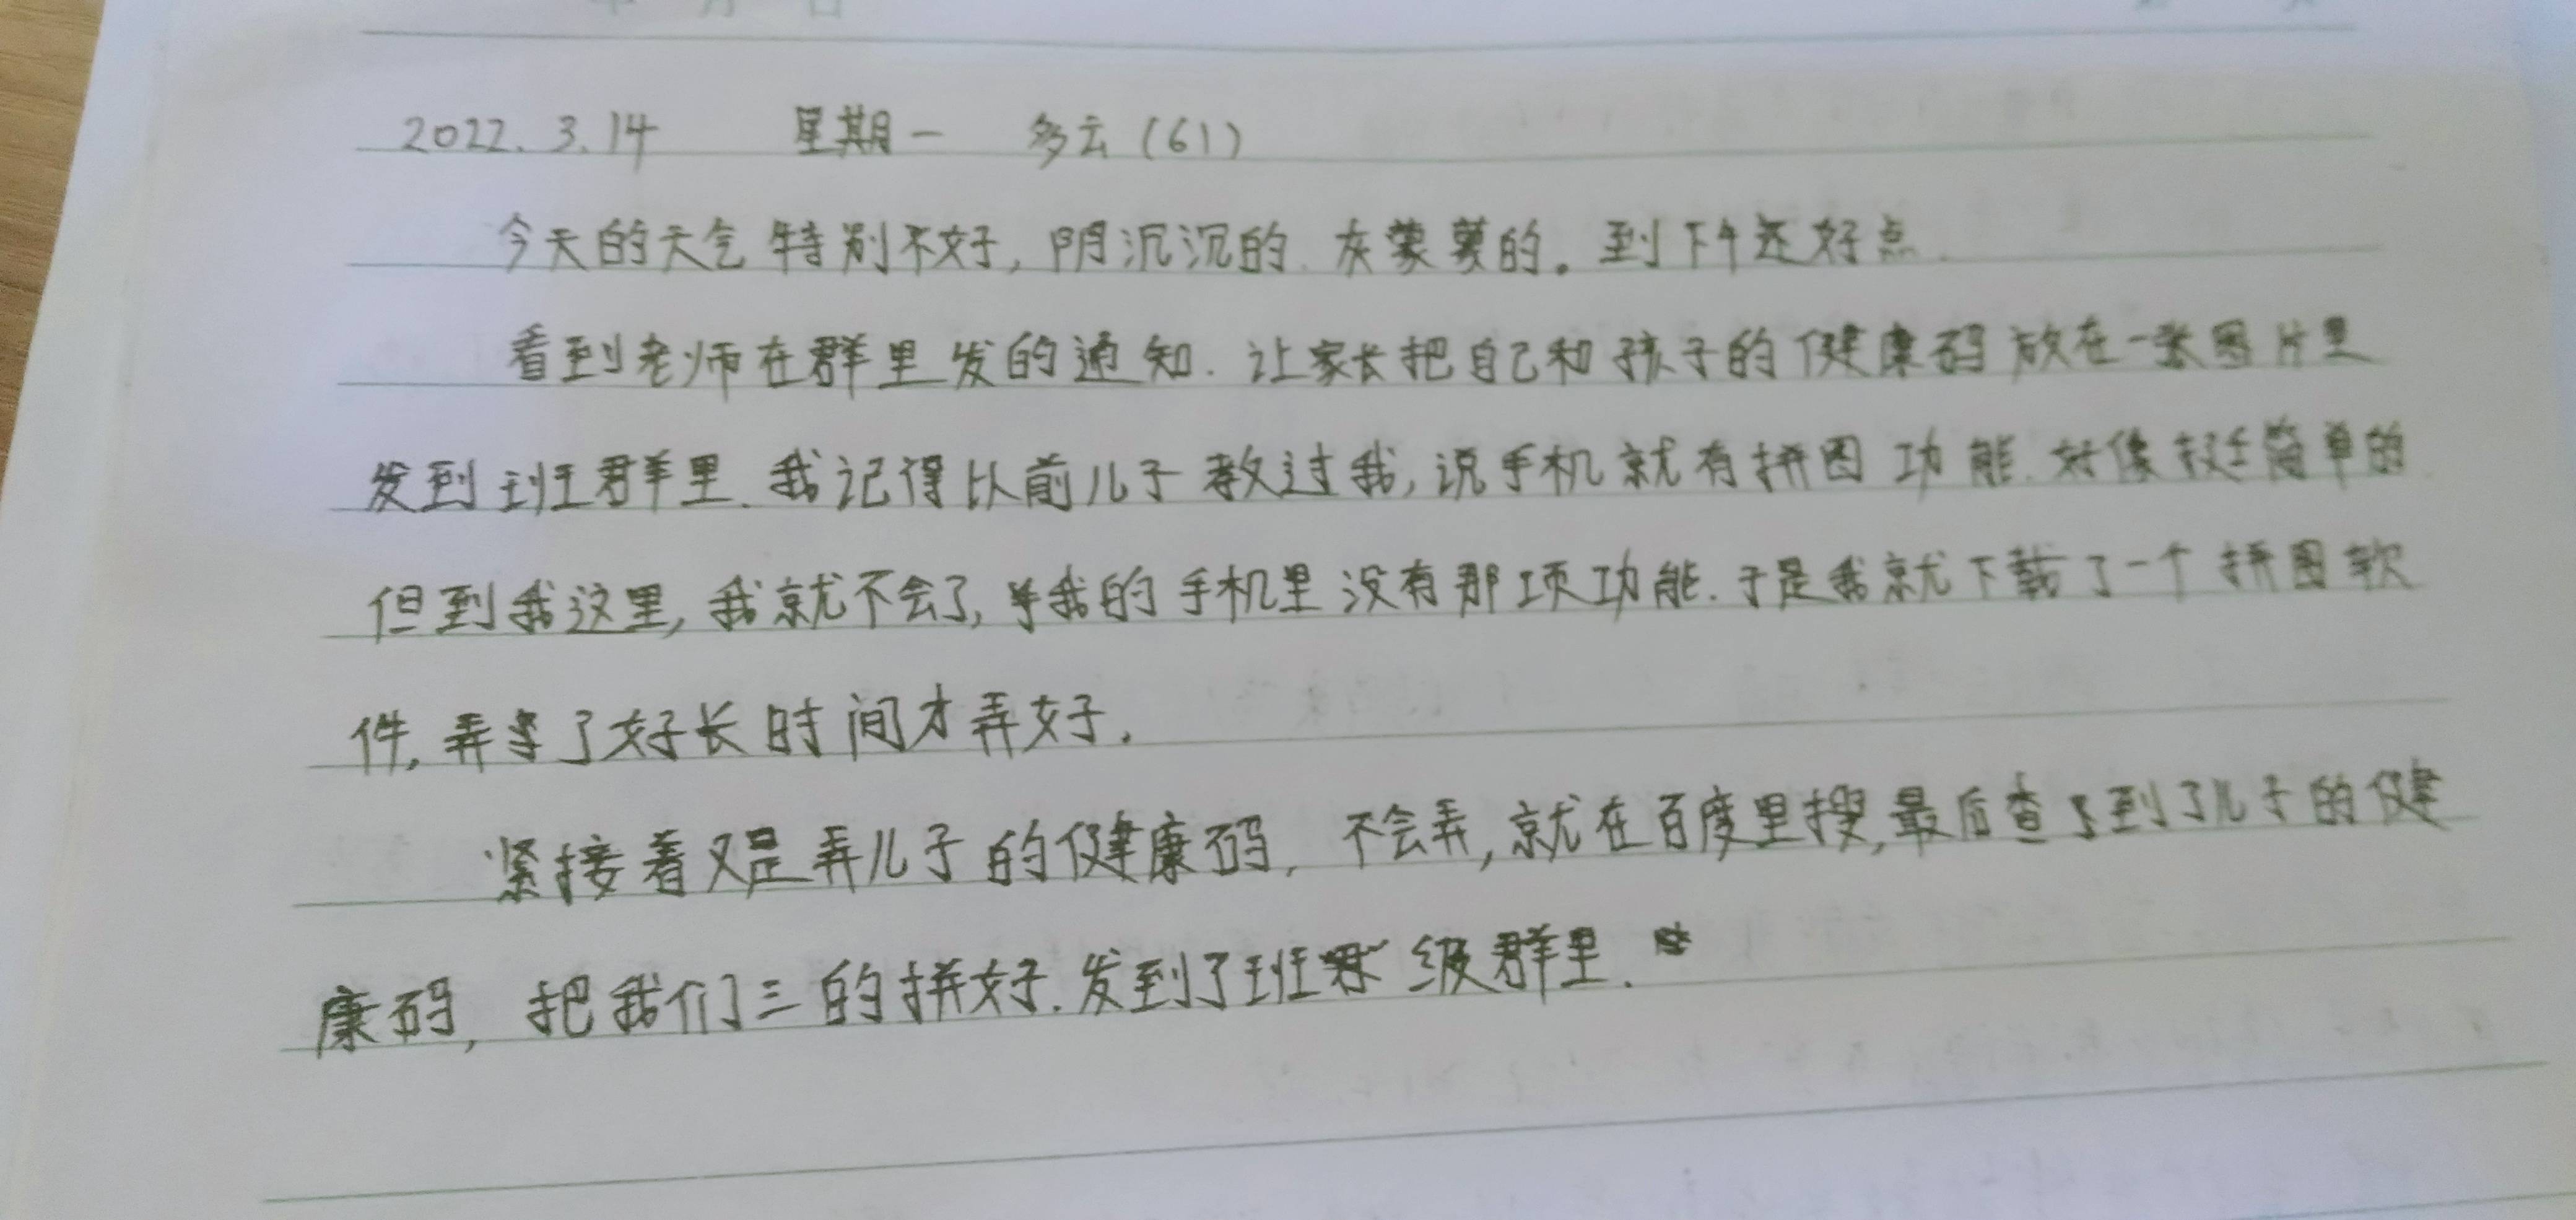 年 月 日
2022.3.14 星期一 多云(61)
今天的天气特别不好,阴沉沉的.灰蒙蒙的。到下午还好点.
看到老师在群里发的通知.让家长把自己和孩子的健康码放在一张图片里
发到班群里.我记得以前儿子教过我,说手机就有拼图功能.好像挺简单的
但到我这里,我就不会了,我的手机里没有那项功能.于是我就下载了一个拼图软
件,弄了好长时间才弄好.
紧接着又是弄儿子的健康码,不会弄,就在百度里搜,最后查到了儿子的健
康码,把我们三的拼好.发到了班级群里.